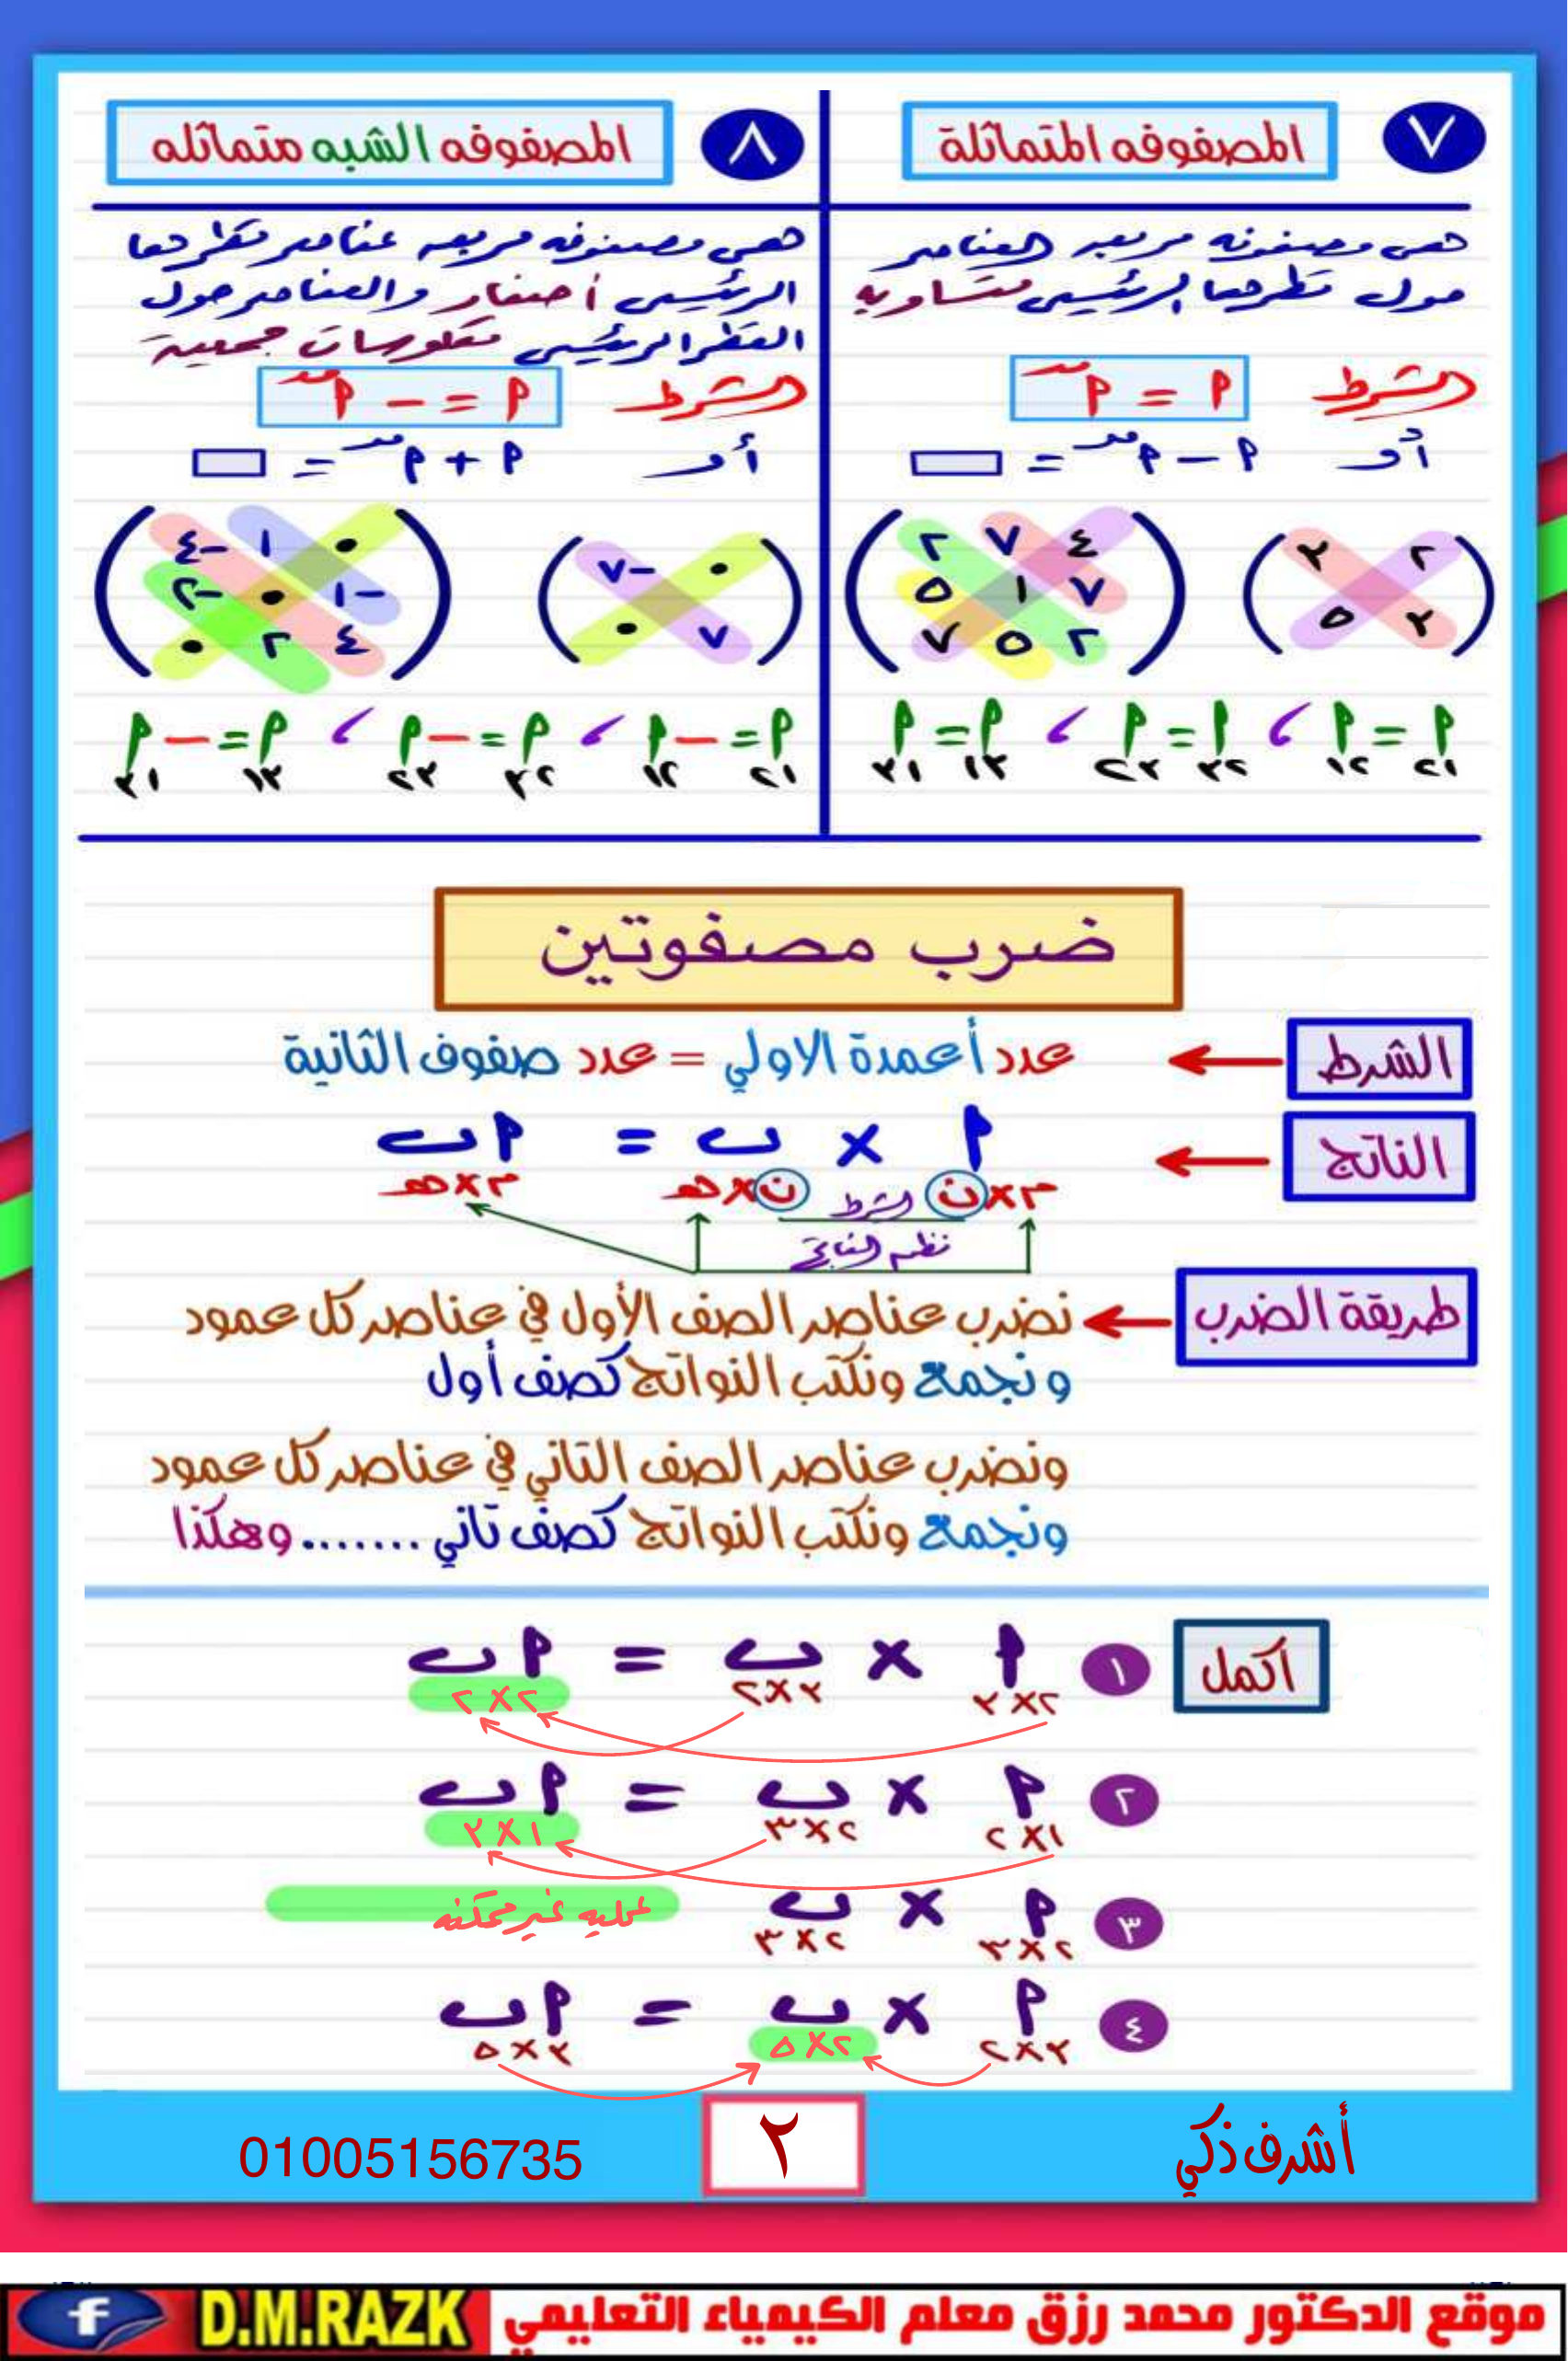 ٧ المصفوفه المتماثلة
هى مصفوفه مربعه العناصر
حول قطرها الرئيسى متساويه
الشرط أ = أمد
أو أ − أمد = □
(٢ ٣
٣ ٥)
(٤ ٧ ٢
٧ ١ ٥
٢ ٥ ٧)
أ٢١ = أ١٢ ، أ٣٢ = أ٢٣ ، أ١٣ = أ٣١
٨ المصفوفه الشبه متماثله
هى مصفوفه مربعه عناصر قطرها
الرئيسى أصفار والعناصر حول
القطر الرئيسى معكوسات جمعية
الشرط أ = − أمد
أو أ + أمد = □
(٠ −٧
٧ ٠)
(٠ ١ −٤
−١ ٠ −٢
٤ ٢ ٠)
أ٢١ = −أ١٢ ، أ٣٢ = −أ٢٣ ، أ١٣ = −أ٣١
ضرب مصفوتين
الشرط ← عدد أعمدة الاولي = عدد صفوف الثانية
الناتج ← أ × ب = أب
م×ن ن×هـ م×هـ
الشرط
نظم الناتج
طريقة الضرب ← نضرب عناصر الصف الأول في عناصر كل عمود
ونجمع ونكتب النواتج كصف أول
ونضرب عناصر الصف التاني في عناصر كل عمود
ونجمع ونكتب النواتج كصف تاني ....... وهكذا
اكمل ١ أ × ب = أب
٢×٣ ٣×٢ ٢×٢
٢ أ × ب = أب
١×٢ ٢×٣ ١×٣
٣ أ × ب عمليه غير ممكنه
٢×٣ ٢×٣
٤ أ × ب = أب
٣×٢ ٢×٥ ٣×٥
أشرف ذكي
٢
01005156735
موقع الدكتور محمد رزق معلم الكيمياء التعليمي D.M.RAZK f